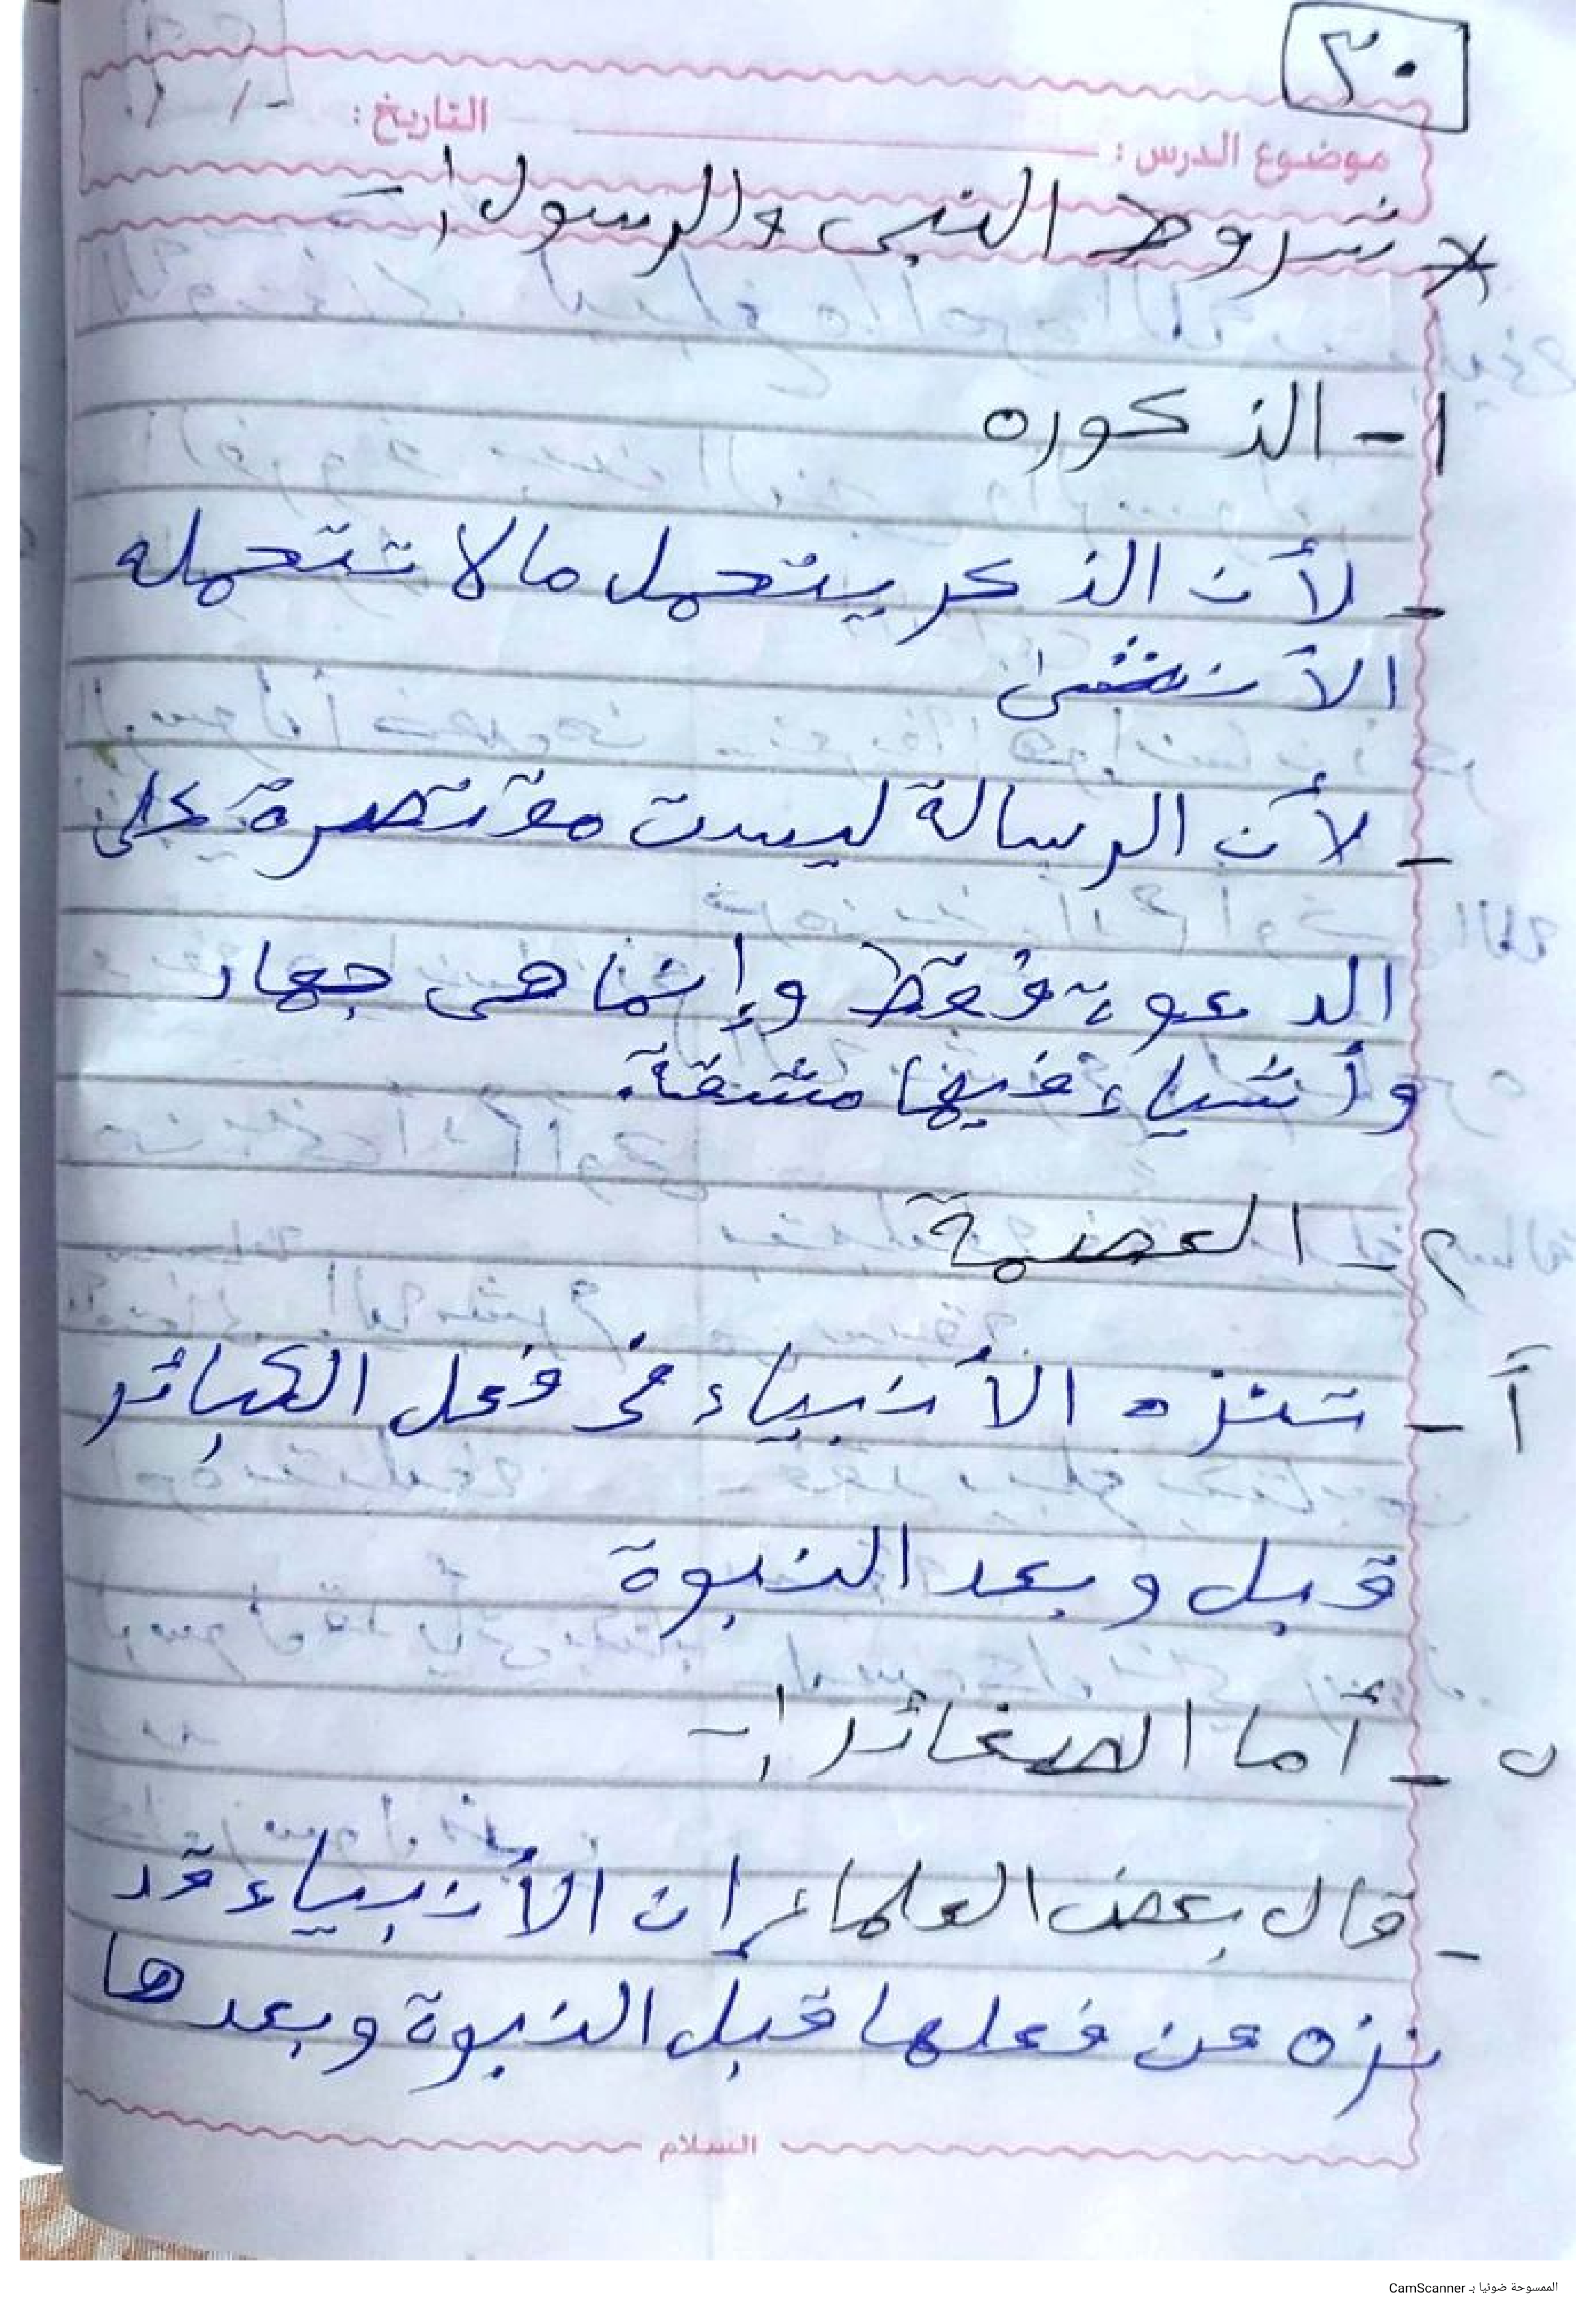 ٣٠
موضوع الدرس : التاريخ : / /
* شروط النبي والرسول :-
١- الذكوره
- لأن الذكر يتحمل مالا تتحمله
الأنثى
- لأن الرسالة ليست مقتصرة على
الدعوة فقط وإنما هى جهاد
وأشياء فيها مشقة.
٢- العصمة
أ - تنزه الأنبياء فى فعل الكبائر
قبل وبعد النبوة
ب - أما الصغائر :-
- قال بعض العلماء إن الأنبياء قد
نزه عن فعلها قبل النبوة وبعدها
السلام
الممسوحة ضوئيا بـ CamScanner